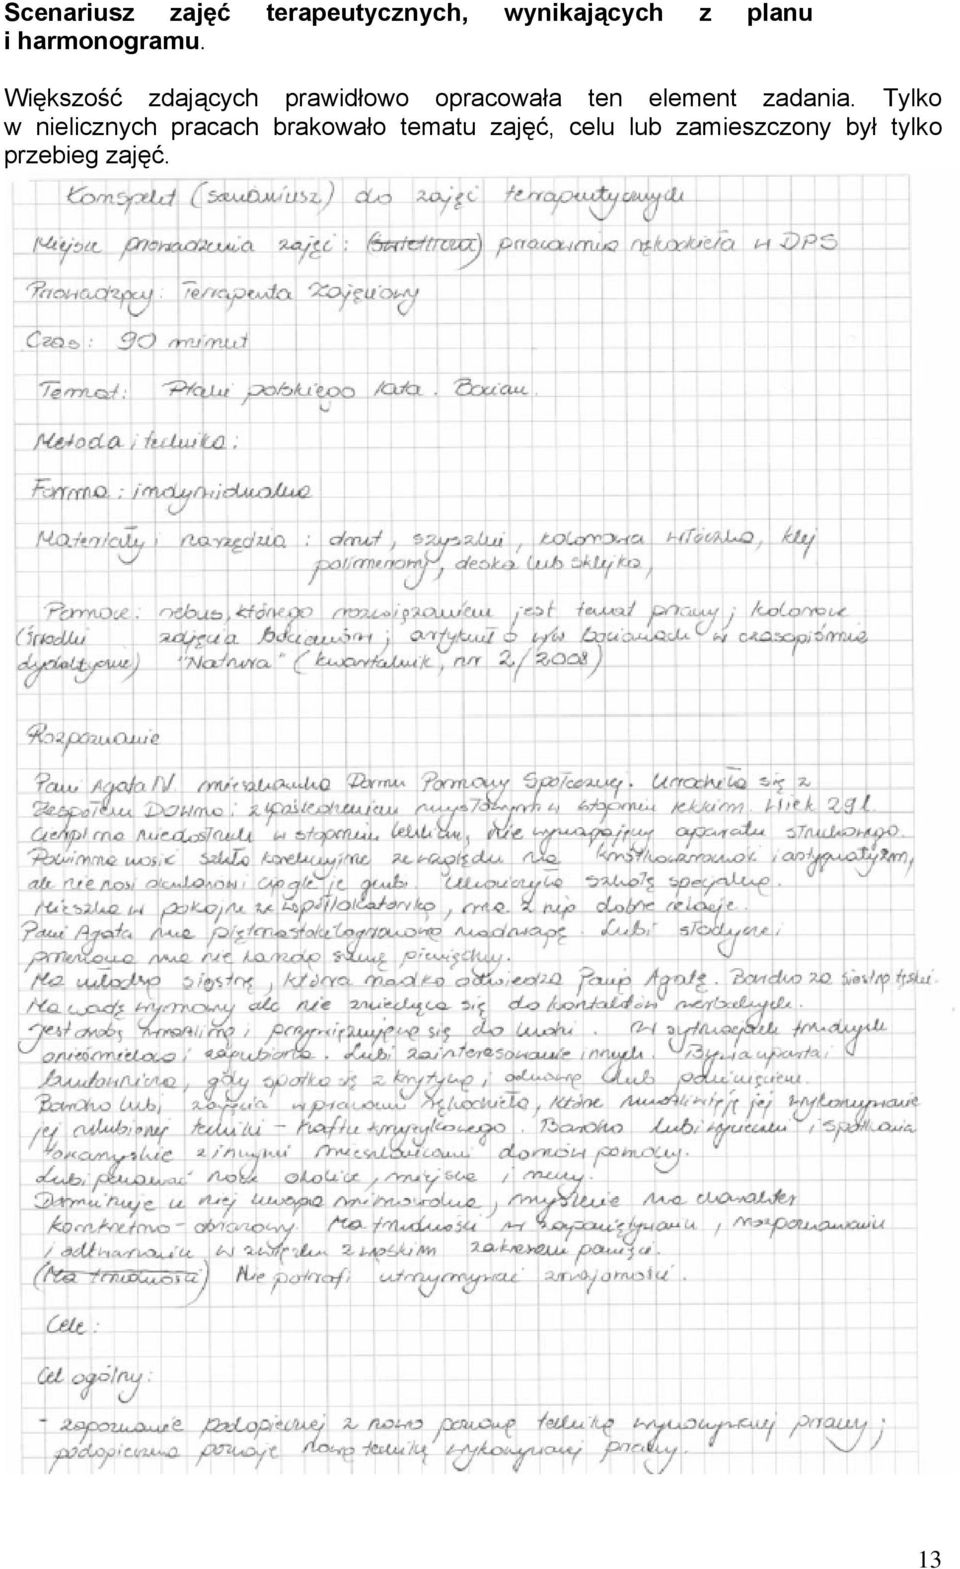 Scenariusz zajęć terapeutycznych, wynikających z planu
i harmonogramu.
Większość zdających prawidłowo opracowała ten element zadania. Tylko
w nielicznych pracach brakowało tematu zajęć, celu lub zamieszczony był tylko
przebieg zajęć.
Konspekt (scenariusz) do zajęć terapeutycznych
Miejsce prowadzenia zajęć: (Świetlica) pracownia rękodzieła w DPS
Prowadzący: Terapeuta Zajęciowy
Czas: 90 minut
Temat: Ptaki polskiego lata. Bocian.
Metoda i technika:
Forma: indywidualna
Materiały i narzędzia: drut, szyszki, kolorowa włóczka, klej
polimerowy, deska lub sklejka,
Pomoce: rebus, którego rozwiązaniem jest temat pracy; kolorowe
(środki zdjęcia bocianów; artykuł o w/w bocianach w czasopiśmie
dydaktyczne) "Natura" (kwartalnik, nr 2/2008)
Rozpoznanie
Pani Agata N. mieszkanka Domu Pomocy Społecznej. Urodziła się z
Zespołem Downa i z upośledzeniem umysłowym w stopniu lekkim. Wiek 29 l.
Cierpi na niedosłuch w stopniu lekkim, nie wymagający aparatu słuchowego.
Powinna nosić szkła korekcyjne ze względu na krótkowzroczność i astygmatyzm,
ale nie nosi okularów i ciągle je gubi. Ukończyła szkołę specjalną.
Mieszka w pokoju ze współlokatorką, ma z nią dobre relacje.
Pani Agata ma piętnastokilogramową nadwagę. Lubi słodycze i
przeważnie ma nie bardzo sumę pieniędzy.
Ma młodszą siostrę, która rzadko odwiedza Panią Agatę. Bardzo za siostrą tęskni.
Ma wadę wymowy ale nie zniechęca się do kontaktów werbalnych.
Jest osobą wrażliwą i przywiązującą się do ludzi. W sytuacjach trudnych
onieśmielona i zagubiona. Lubi zainteresowanie innych. Bywa uparta i
buntownicza, gdy spotka się z krytyką i odmową lub
Bardzo lubi zajęcia w pracowni rękodzieła, które umożliwiają jej wykonywanie
jej ulubionej techniki - haftu krzyżykowego. Bardzo lubi wycieczki i spotkania
towarzyskie z innymi mieszkańcami domów pomocy.
Lubi poznawać nowe okolice, miejsca i rzeczy.
Dominuje u niej uwaga mimowolna, myślenie ma charakter
konkretno-obrazowy. Ma trudności w zapamiętywaniu, rozpoznawaniu
i odtwarzaniu w związku z wąskim zakresem pamięci.
(Ma trudności) Nie potrafi utrzymywać znajomości.
Cele:
Cel ogólny:
- zapoznanie podopiecznej z nowo poznaną techniką wykonywanej pracy;
podopieczna poznaje nową technikę wykonywanej pracy.
13